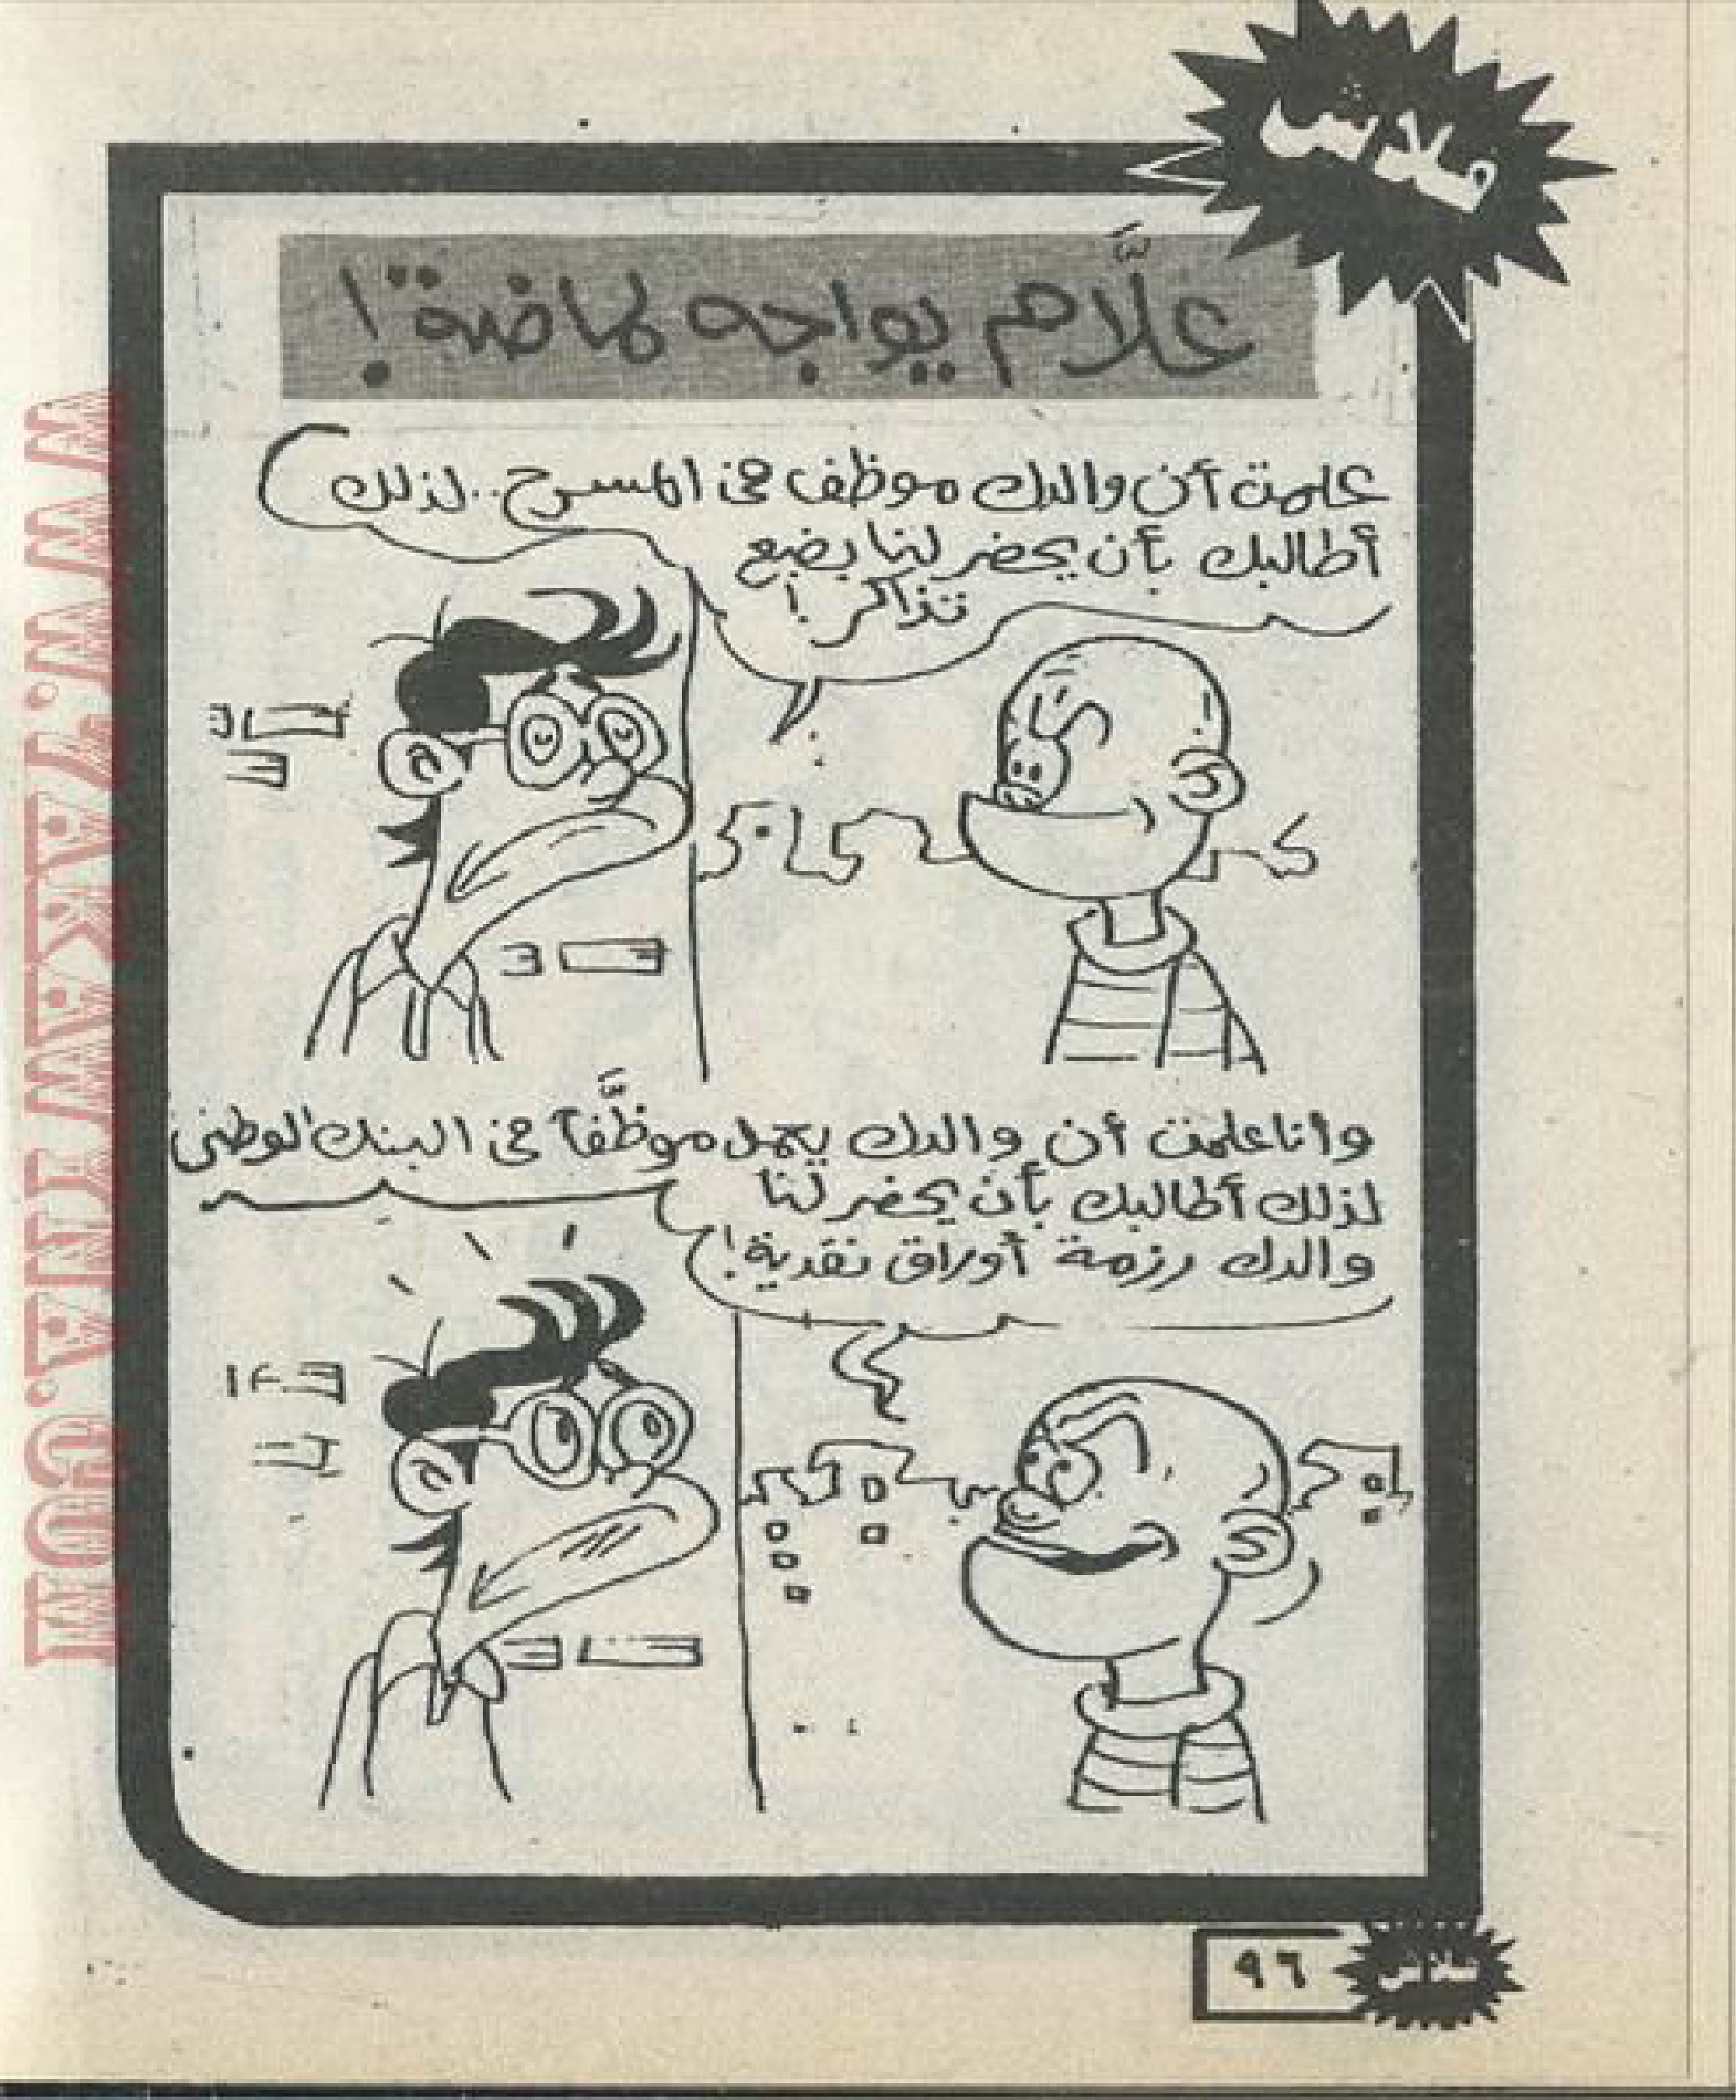 فلاش
علَّام يواجه لماضة!
علمت أن والدك موظف في المسرح.. لذلك
أطالبك بأن يحضر لنا بضع
تذاكر!
وأنا علمت أن والدك يعمل موظَّفاً في البنك الوطنى
لذلك أطالبك بأن يحضر لنا
والدك رزمة أوراق نقدية!
فلاش
٩٦